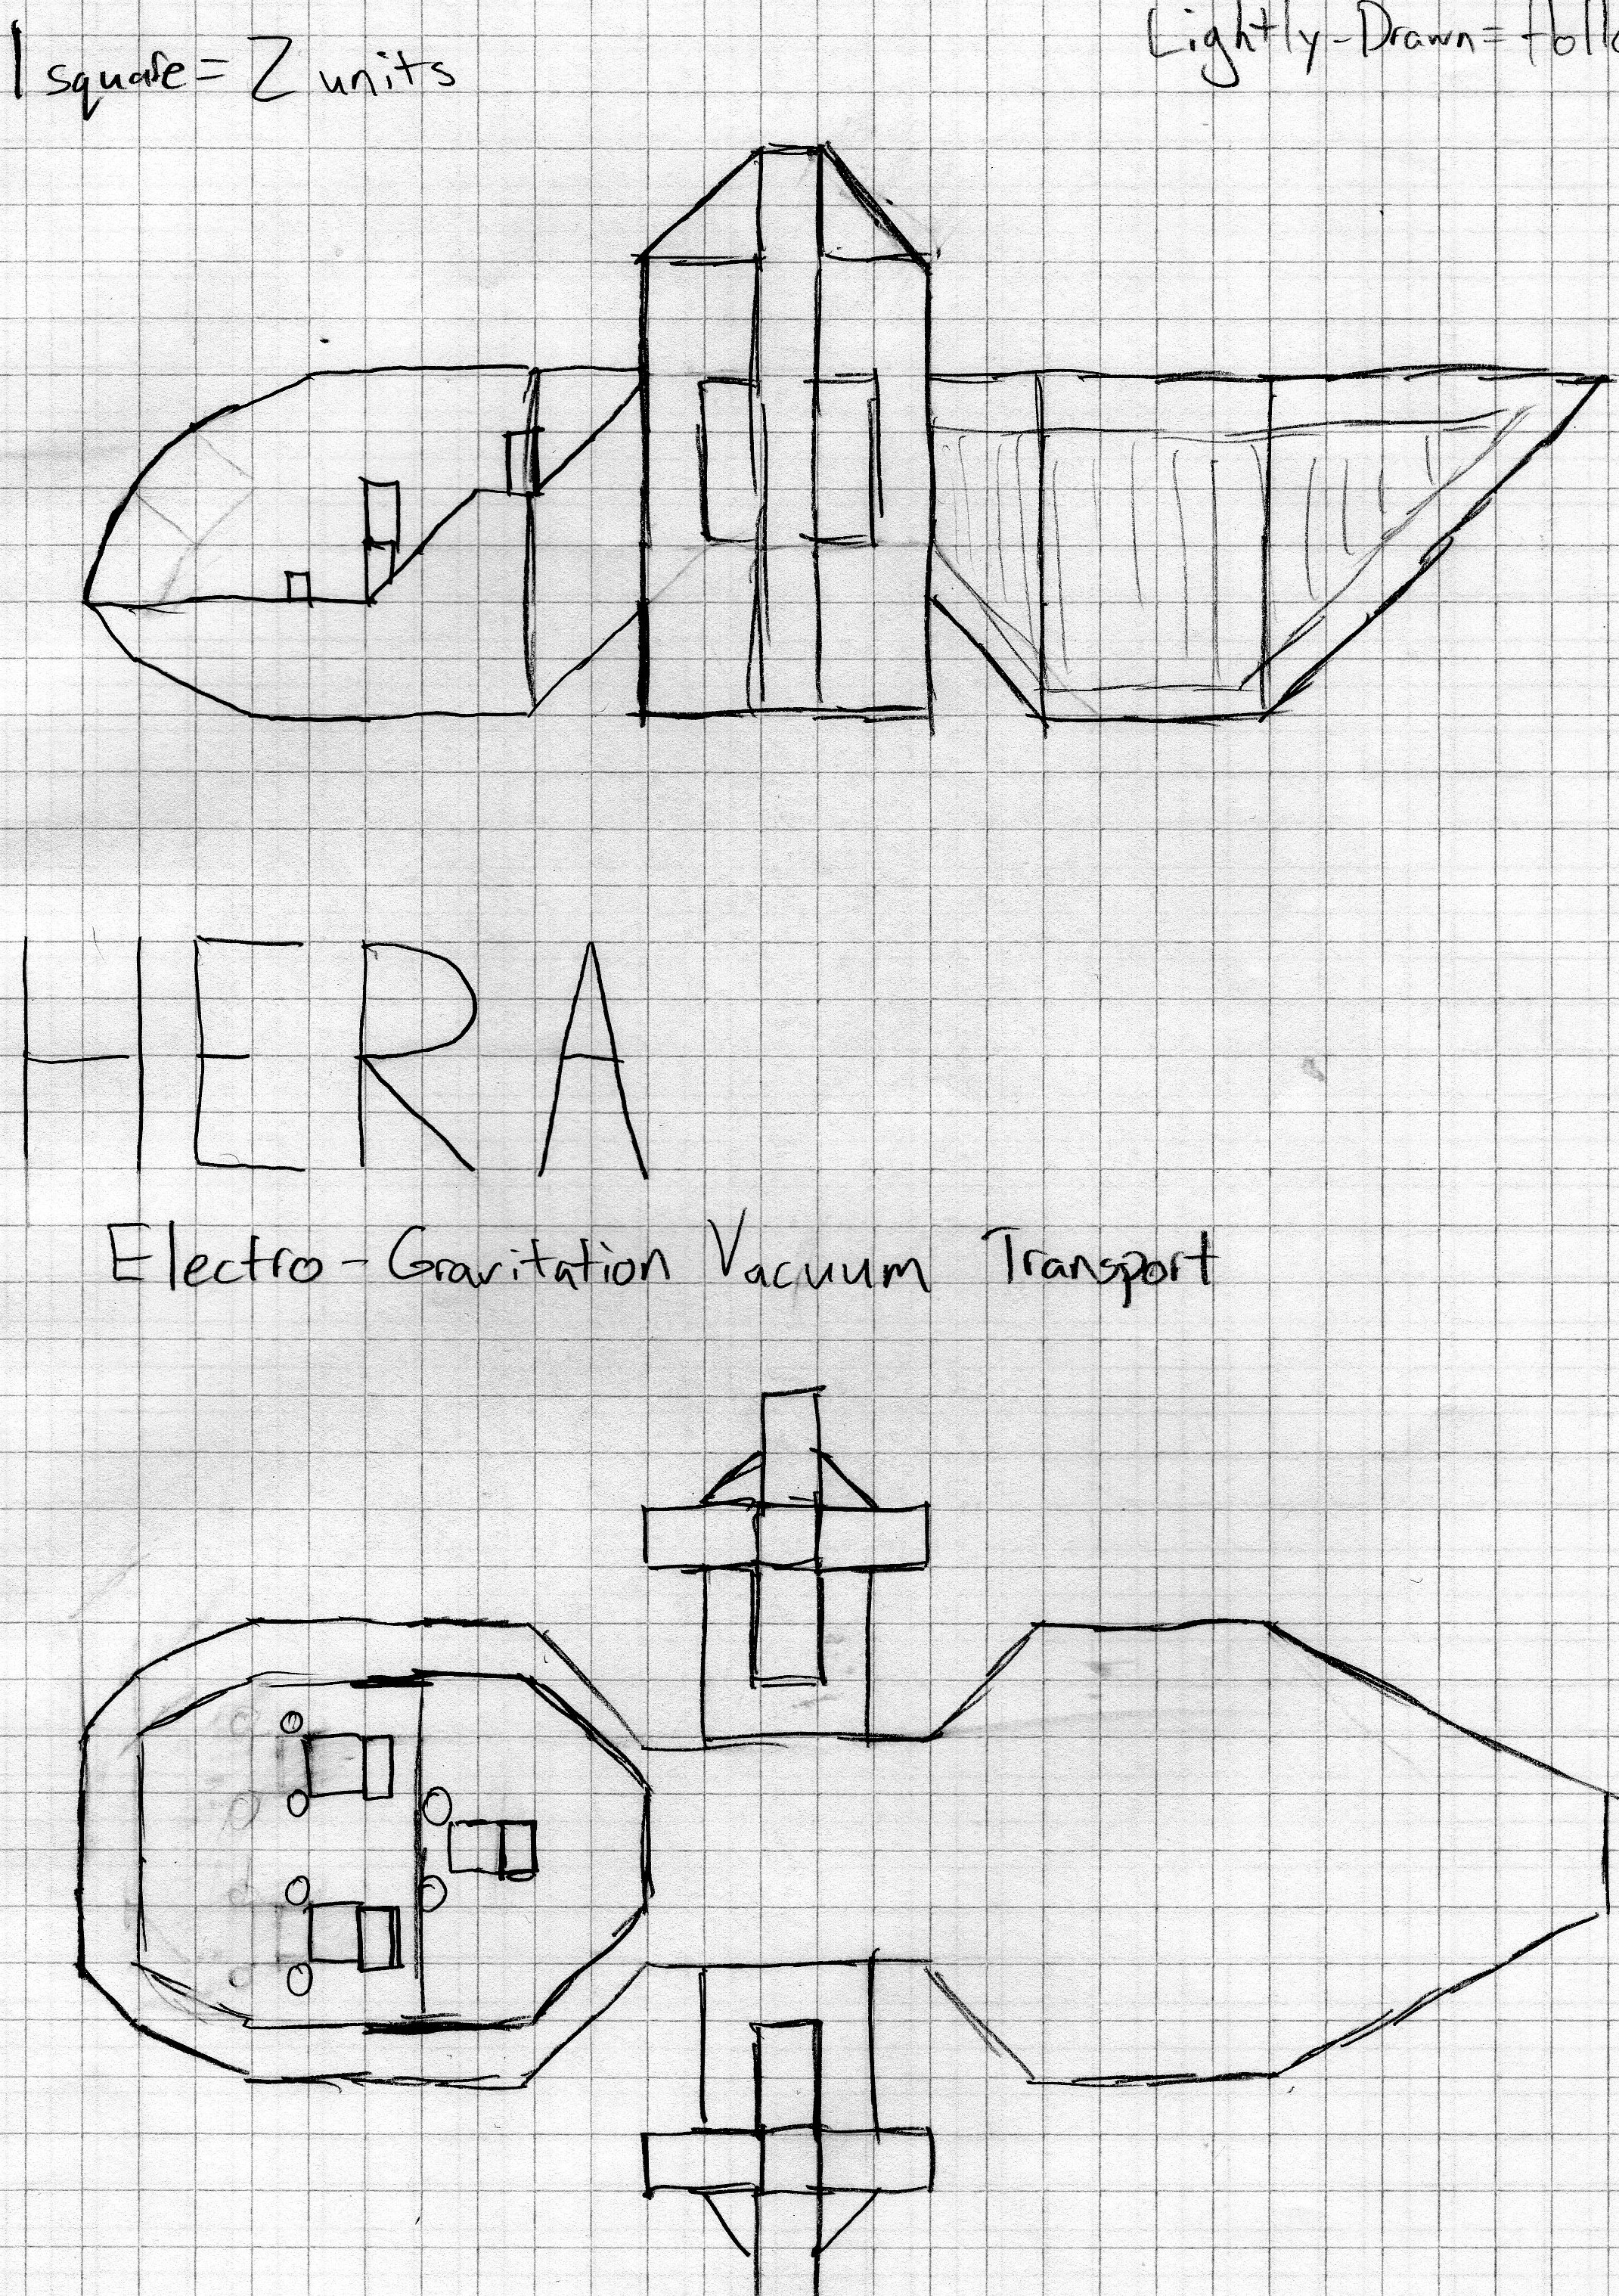 1 square = 2 units
Lightly-Drawn =
HERA
Electro-Gravitation Vacuum Transport